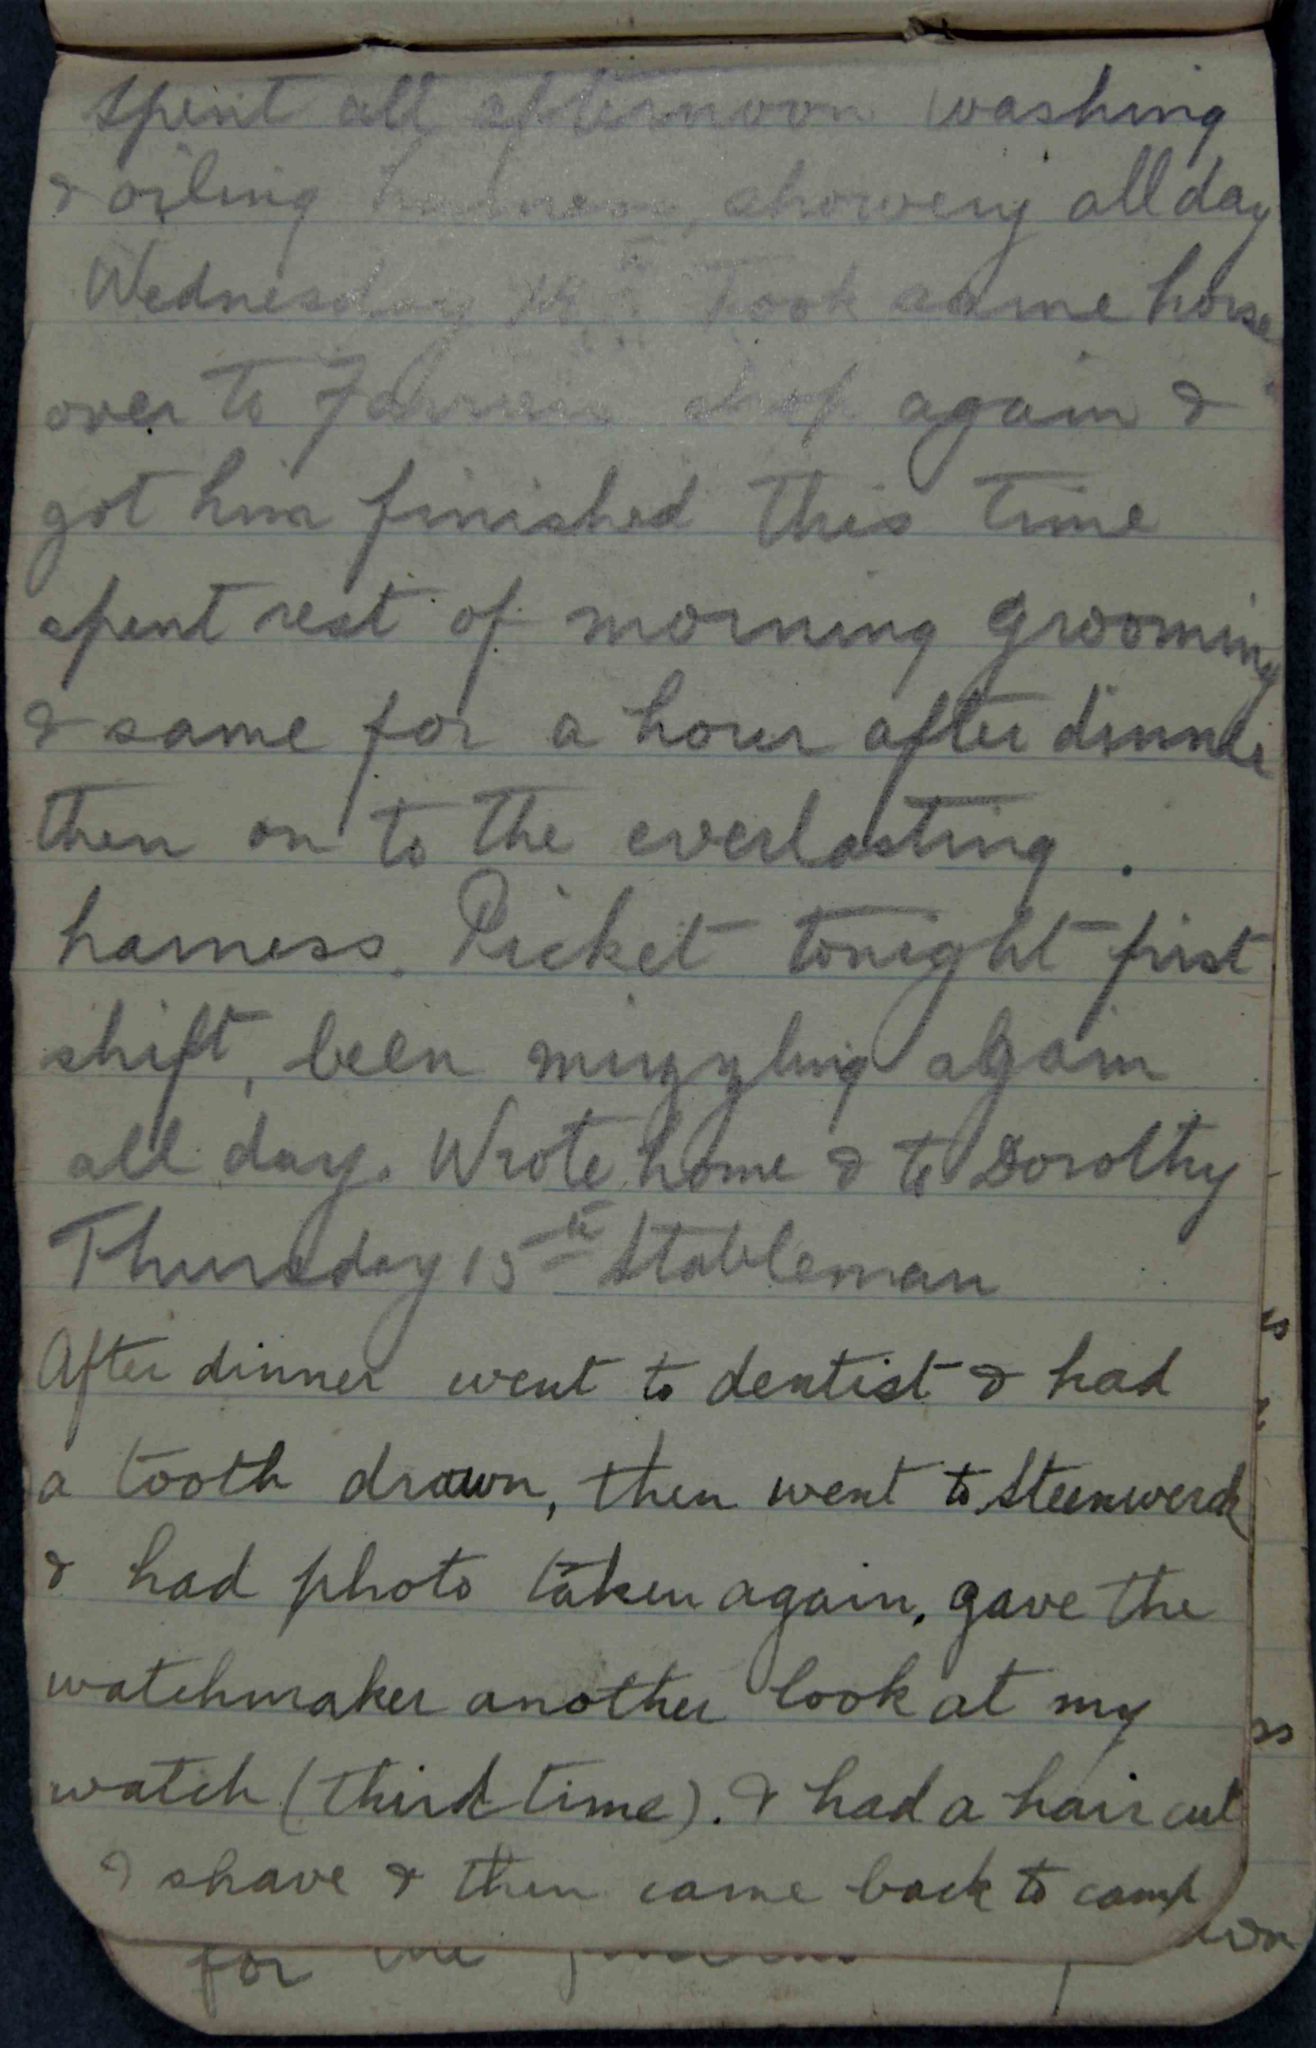 spent all afternoon washing
& oiling harness, showery all day
Wednesday 14th Took same horse
over to Farriers shop again &
got him finished this time
spent rest of morning grooming
& same for a hour after dinner
then on to the everlasting .
harness. Picket tonight first
shift, been mizzling again
all day. Wrote home & to Dorothy
Thursday 15th Stableman
After dinner went to dentist & had
a tooth drawn, then went to Steenwerck
& had photo taken again. gave the
watchmaker another look at my
watch (third time). & had a hair cut
& shave & then came back to camp
for the